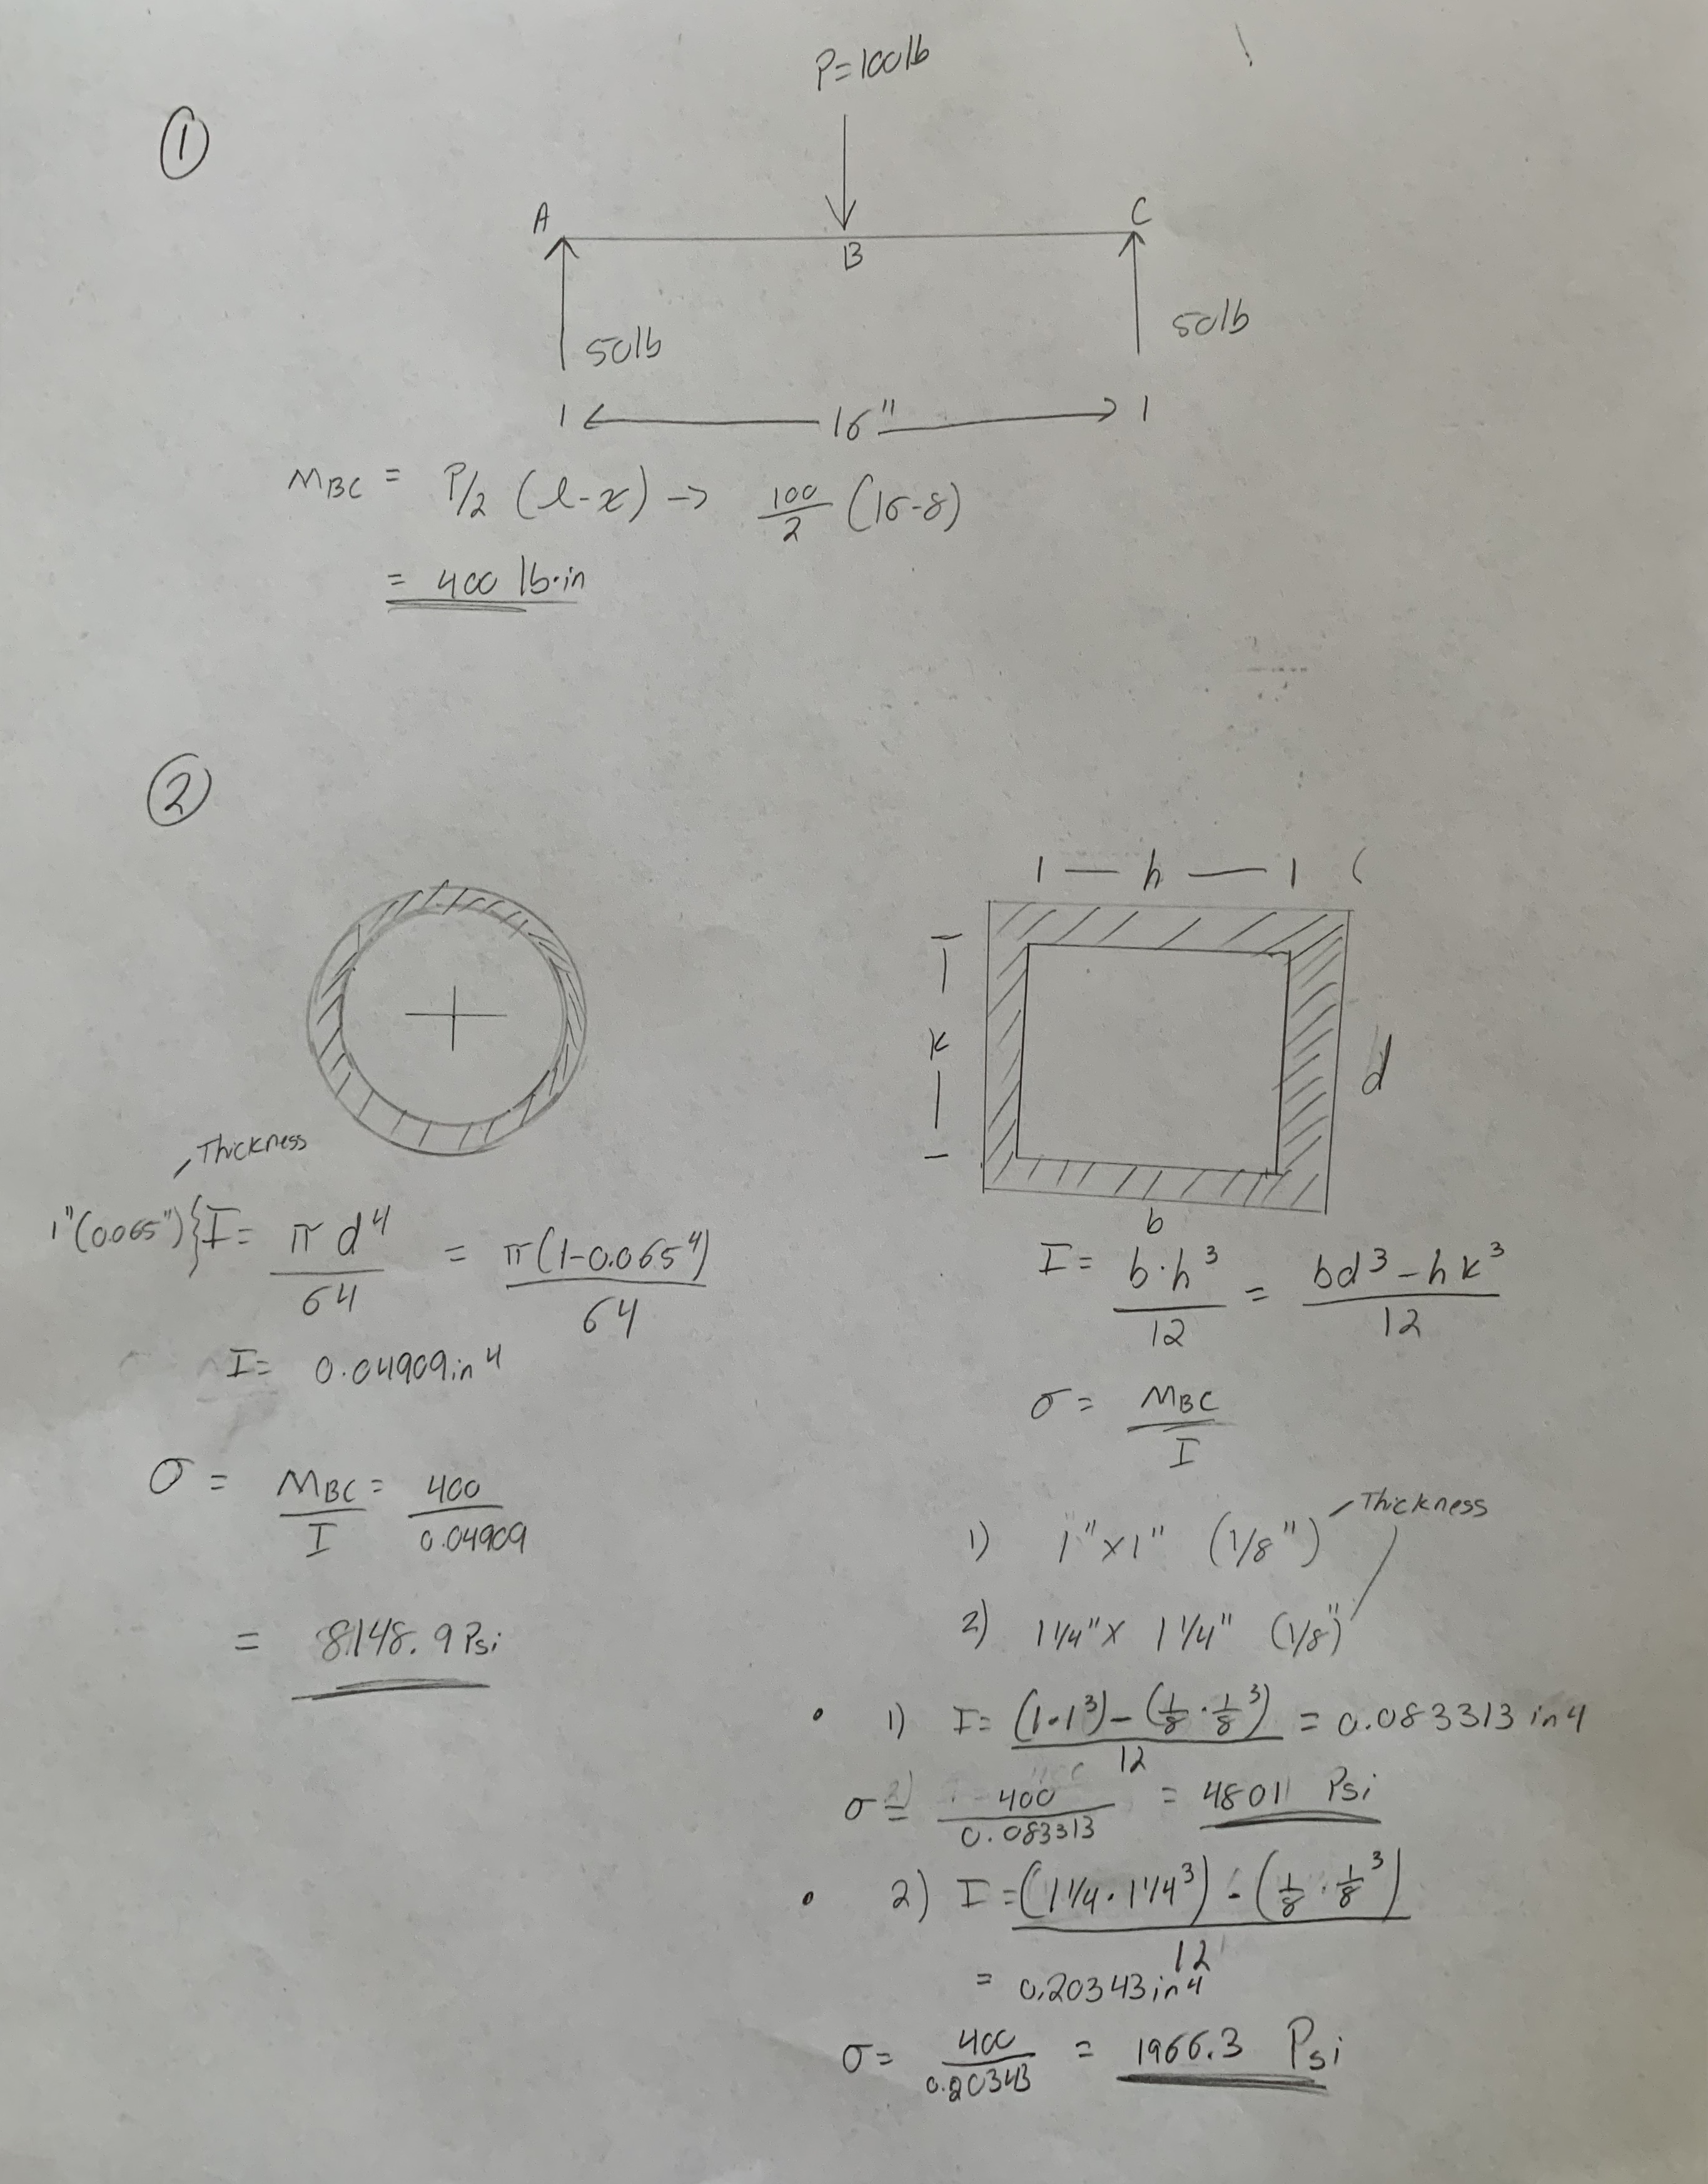 P=100lb
①
A
C
B
50lb
50lb
16"
MBC = P/2 (l-x) -> 100/2 (16-8)
= 400 lb·in
②
h
k
d
b
Thickness
1"(0.065") } I= πd⁴/64 = π(1-0.065⁴)/64
I= 0.04909in⁴
σ = MBC/I = 400/0.04909
= 8148.9 Psi
I= b·h³/12 = bd³-hk³/12
σ= MBC/I
Thickness
1) 1"x1" (1/8")
2) 1 1/4" x 1 1/4" (1/8")
• 1) I= (1·1³)-(1/8·1/8³)/12 = 0.083313 in4
σ= 400/0.083313 = 4801 Psi
• 2) I=(1 1/4·1 1/4³)-(1/8·1/8³)/12
= 0.20343in4
σ= 400/0.20343 = 1966.3 Psi